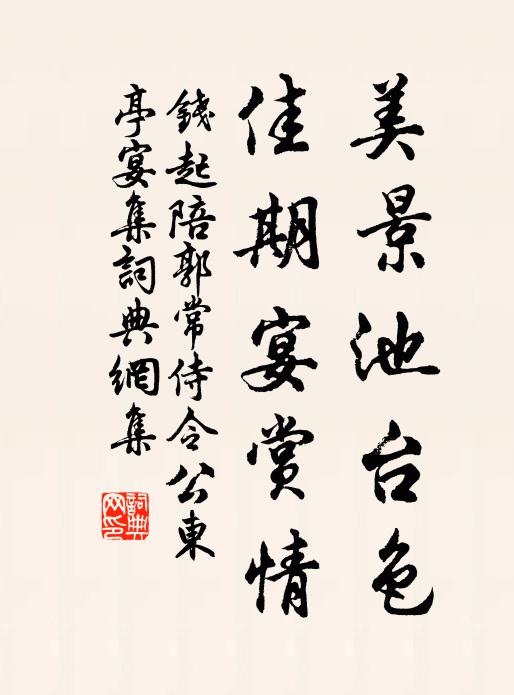 美景池台色
佳期宴赏情
錢起陪郭常侍令公東
亭宴集詞典網集
詞典
网印